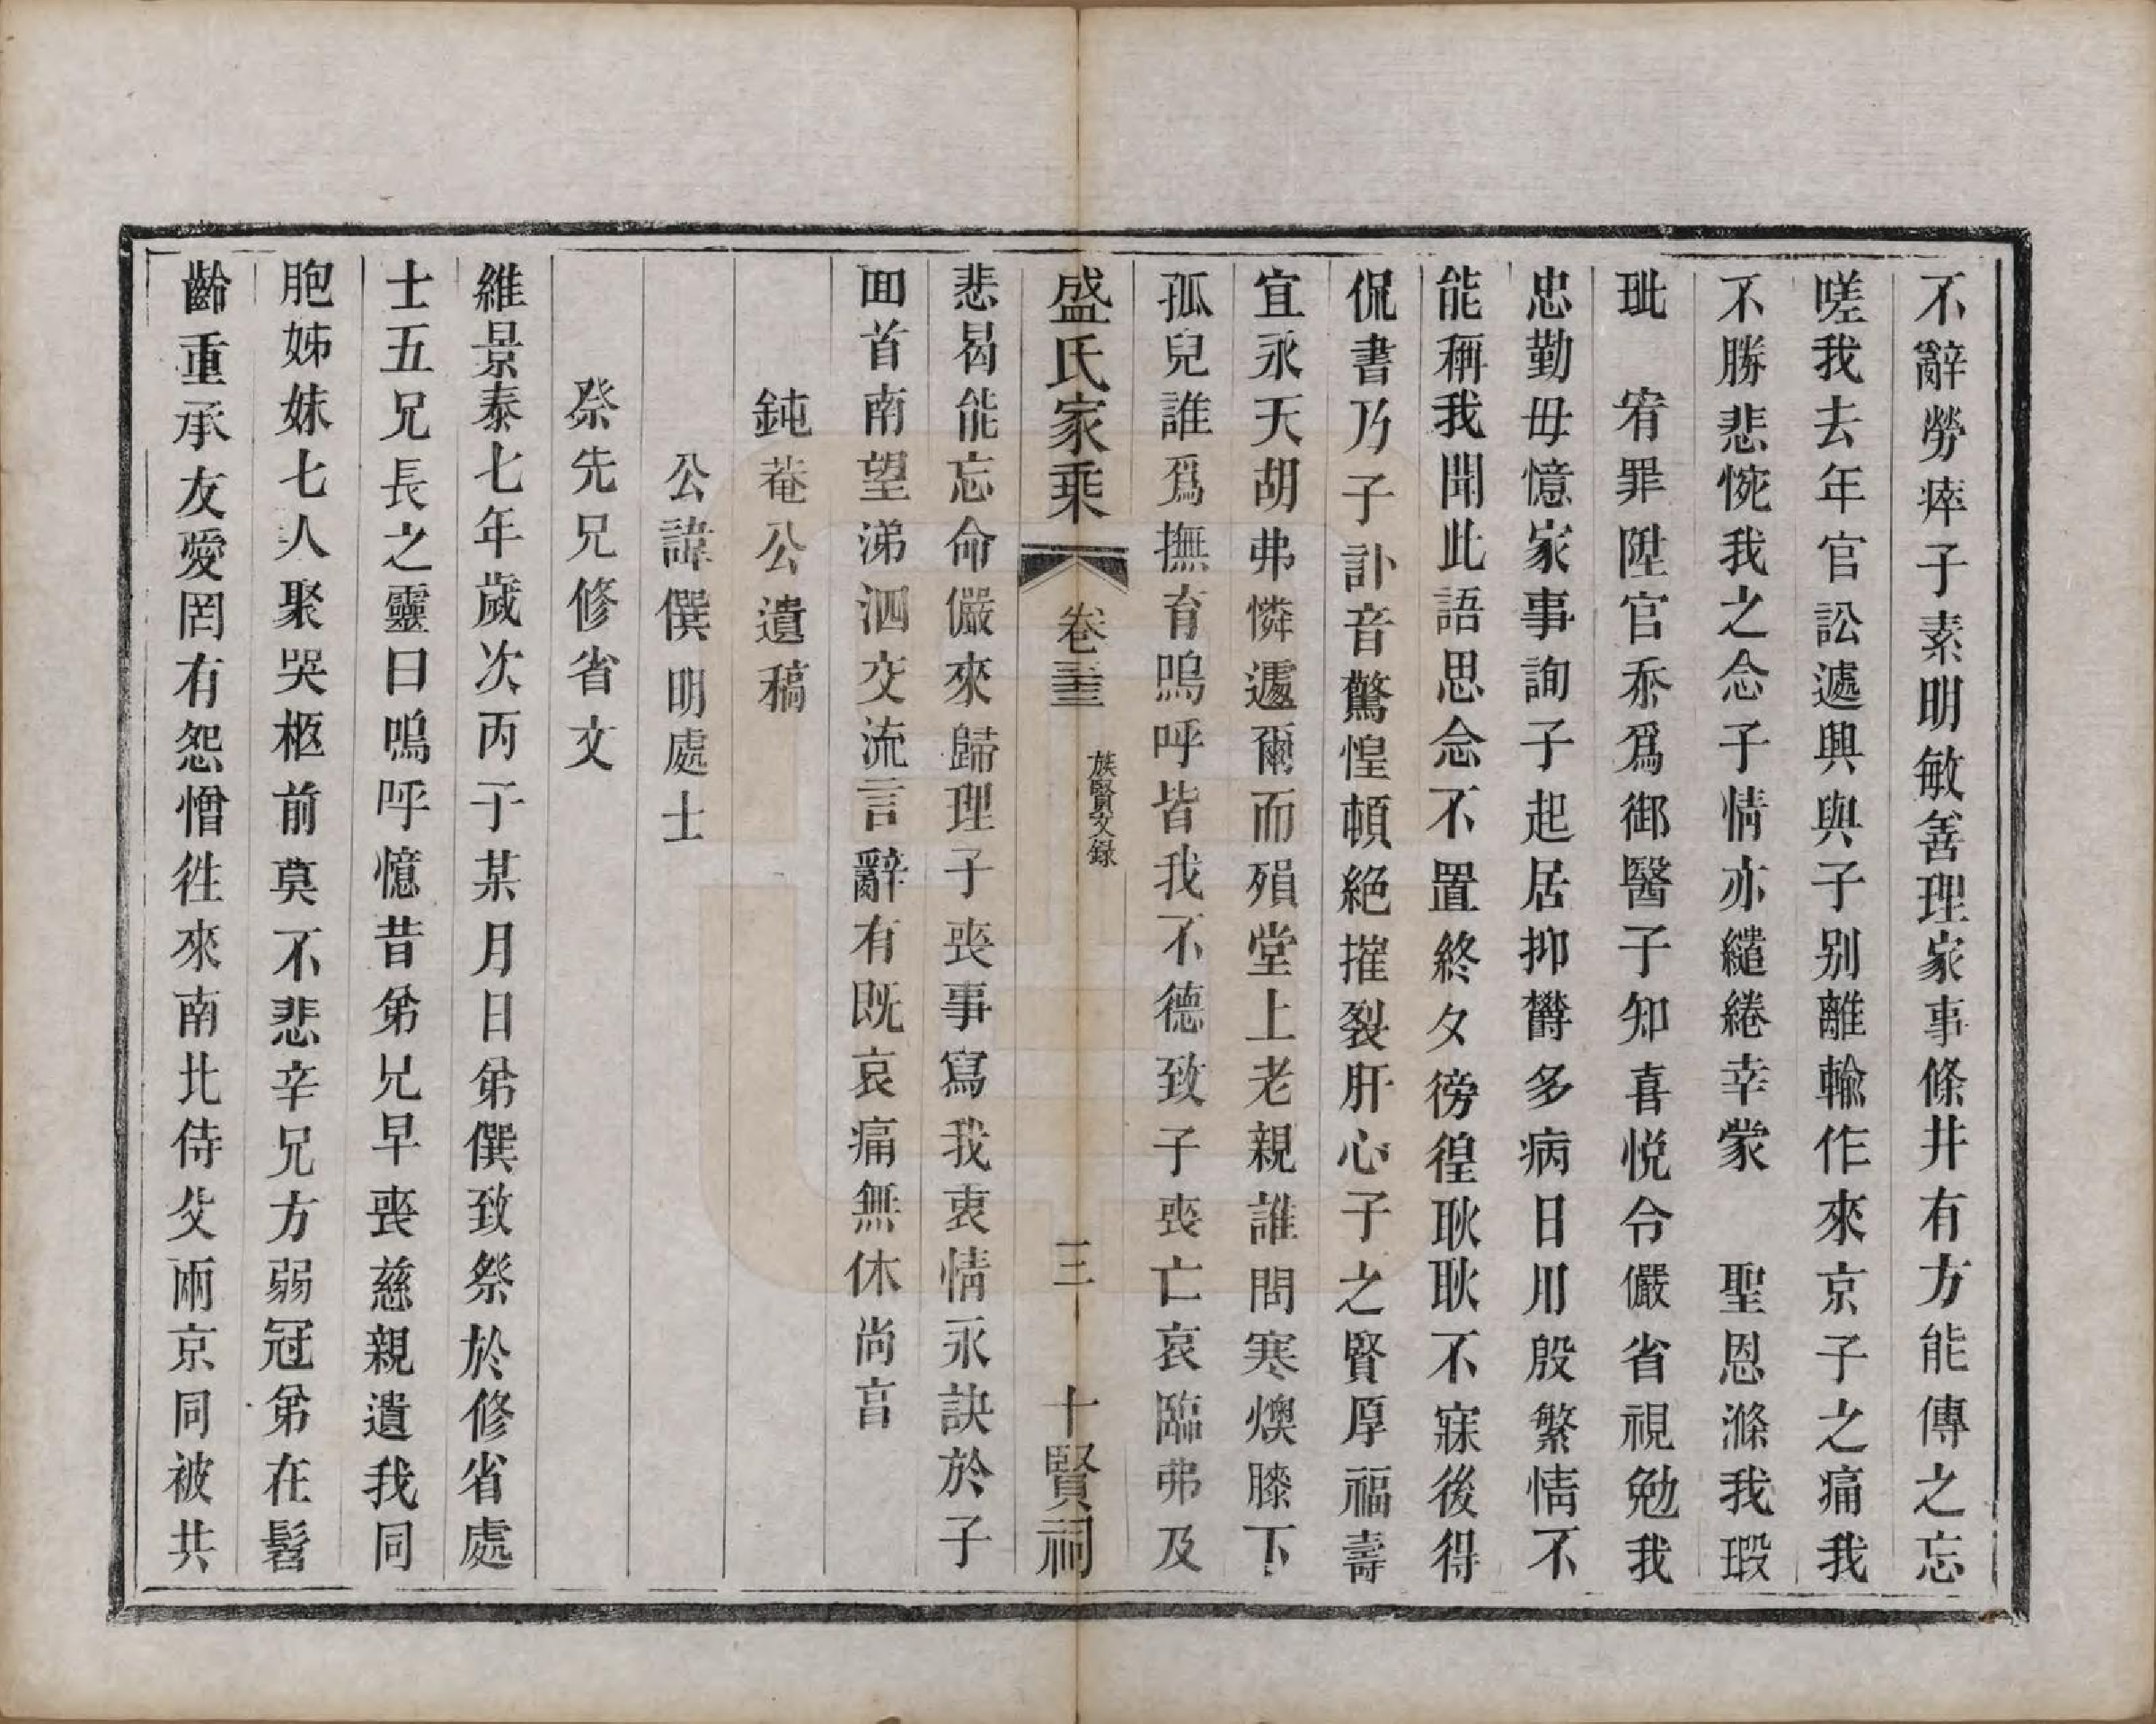 不辭勞瘁子素明敏善理家事條井有方能傳之忘
嗟我去年官訟遽興與子别離輸作來京子之痛我
不勝悲惋我之念子情亦繾綣幸蒙　聖恩滌我瑕
玼　宥罪陞官忝爲御醫子知喜悅令儼省視勉我
忠勤毋憶家事詢子起居抑欝多病日用殷繁情不
能稱我聞此語思念不置終夕徬徨耿耿不寐後得
侃書乃子訃音驚惶頓絕摧裂肝心子之賢厚福壽
宜永天胡弗憐遽爾而殞堂上老親誰問寒燠膝下
孤兒誰爲撫育嗚呼皆我不德致子喪亡哀臨弗及
盛氏家乘　卷三十三　族賢文錄　三　十賢祠
悲曷能忘命儼來歸理子喪事寫我衷情永訣於子
回首南望涕泗交流言辭有既哀痛無休尚亯
鈍菴公遺稿
公諱僎明處士
祭先兄修省文
維景泰七年歲次丙子某月日弟僎致祭於修省處
士五兄長之靈曰嗚呼憶昔弟兄早喪慈親遺我同
胞姊妹七人聚哭柩前莫不悲辛兄方弱冠弟在髫
齡重承友愛罔有怨憎徃來南北侍父兩京同被共